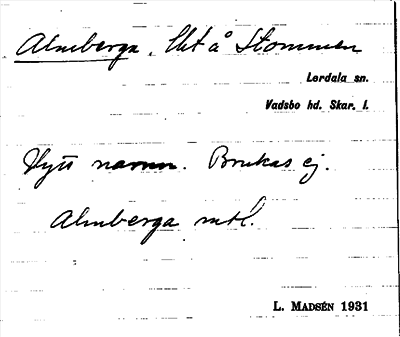 Almberga, Lht å Stommen
Lerdala sn.
Vadsbo hd. Skar. l.
Nytt namn. Brukas ej.
Almberga mtl.
L. MADSÉN 1931